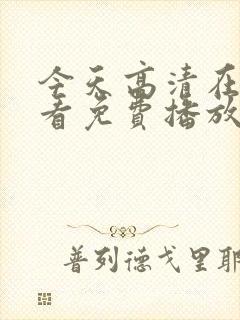 今天高清在
看免费播放
普列德戈里耶